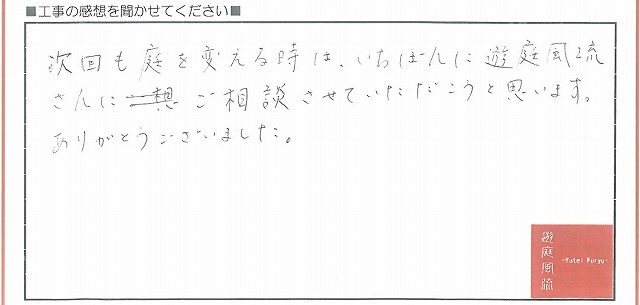 ■工事の感想を聞かせてください■
次回も庭を変える時は、いちばんに遊庭風流
さんに ご相談させていただこうと思います。
ありがとうございました。
遊庭風流
-Yutei Furyu-